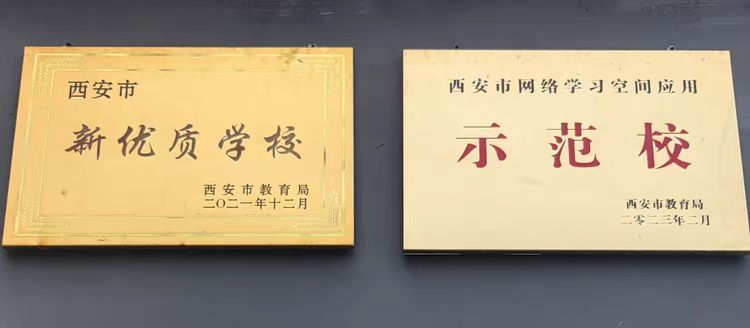 西安市
新优质学校
西安市教育局
二〇二一年十二月
西安市网络学习空间应用
示范校
西安市教育局
二零二三年二月